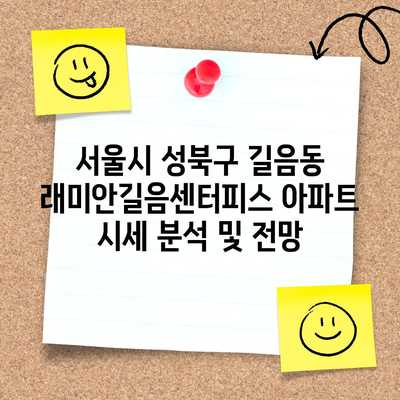 서울시 성북구 길음동
래미안길음센터피스 아파트
시세 분석 및 전망